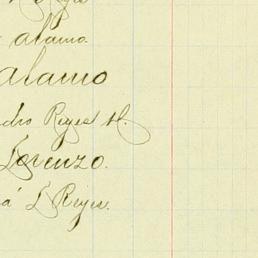 Reyes
alamo.
alamo
dro Reyes H.
Lorenzo.
á L Reyes.